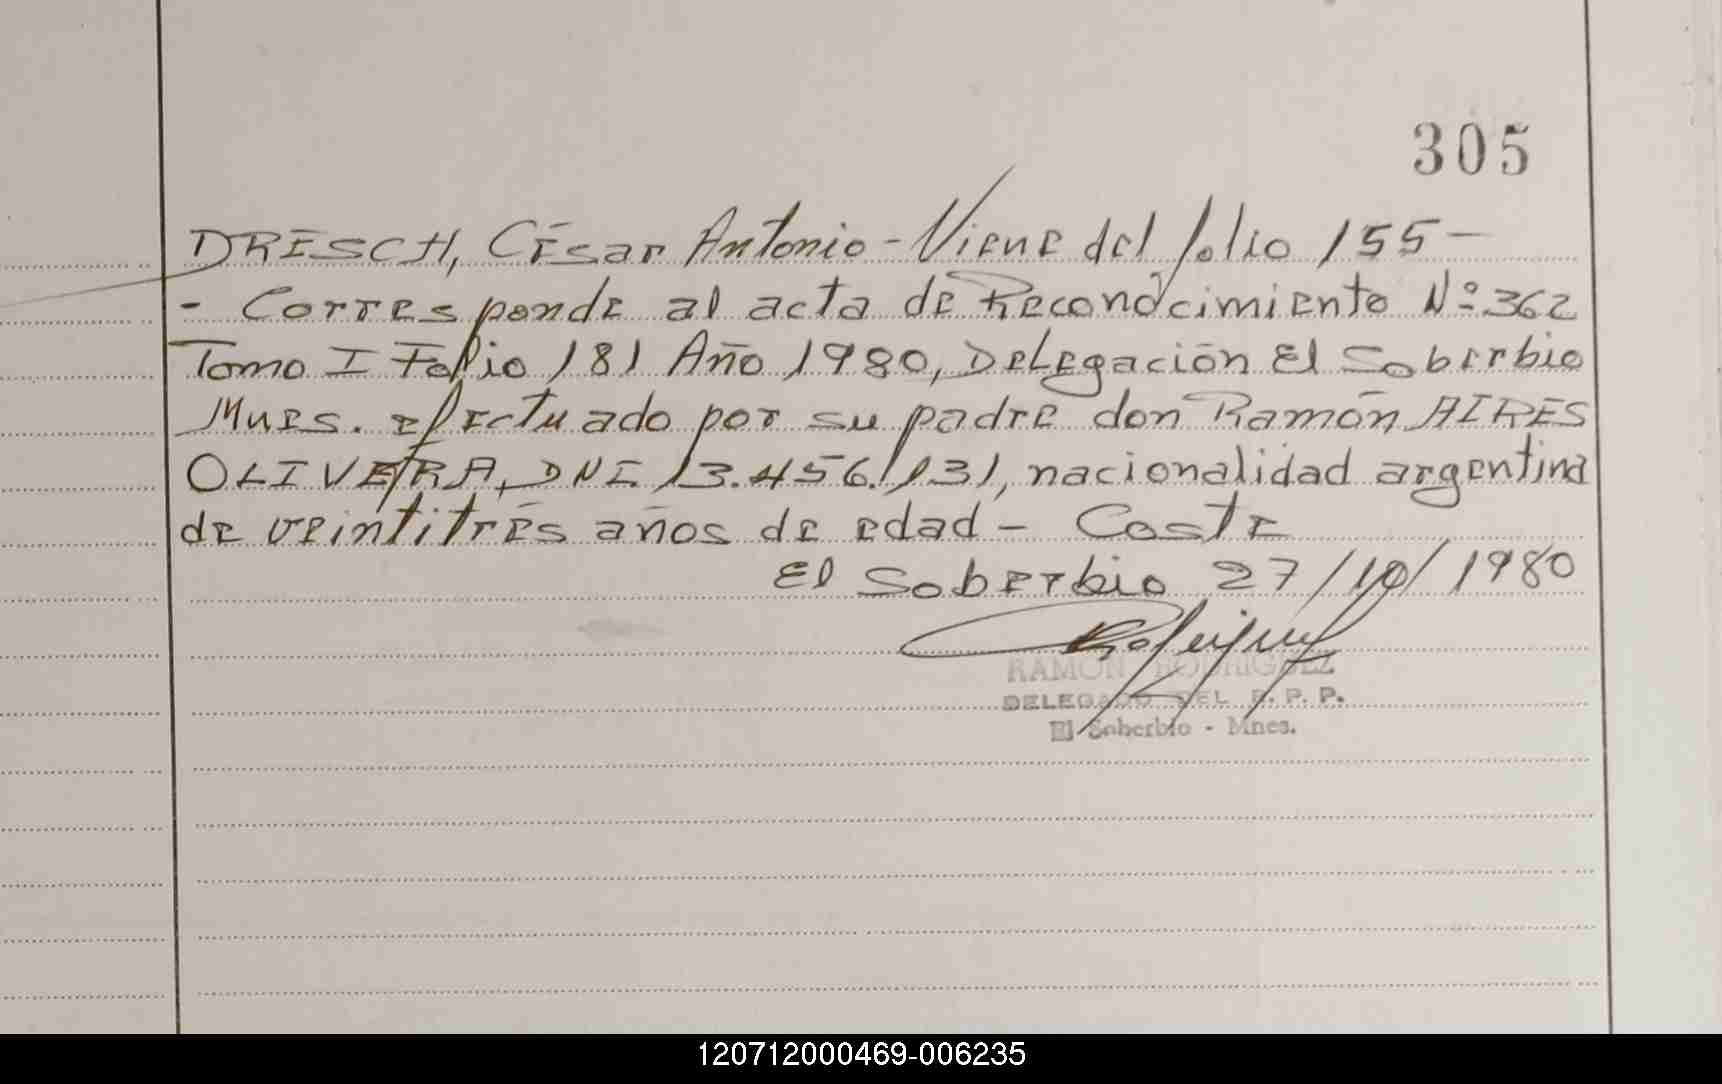 305
DRESCH, César Antonio - Viene del folio 155 -
- Corresponde al acta de Reconocimiento Nº 362
Tomo I Folio 181 Año 1980, Delegación El Soberbio
Mnes. efectuado por su padre don Ramón AIRES
OLIVERA, DNI. 13.456.131, nacionalidad argentina
de veintitrés años de edad - Coste
El Soberbio 27/10/1980
RAMON RODRIGUEZ
DELEGADO DEL R. P. P.
El Soberbio - Mnes.
120712000469-006235